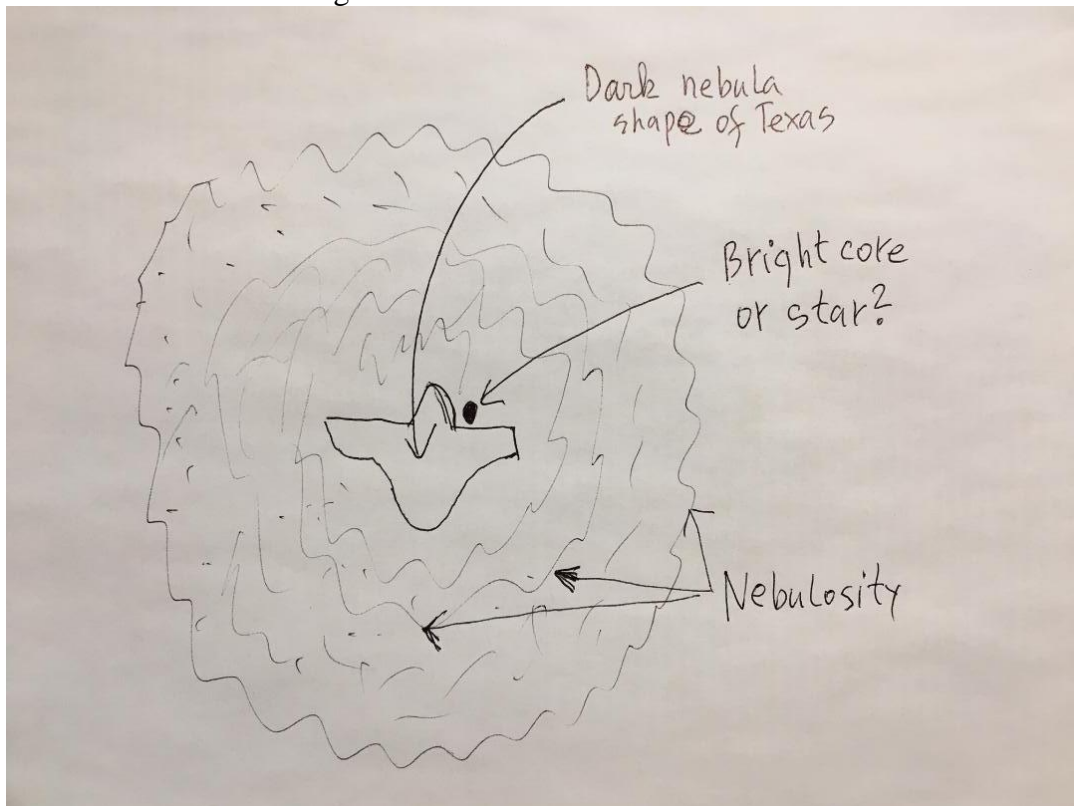 Dark nebula
shape of Texas
Bright core
or star?
Nebulosity